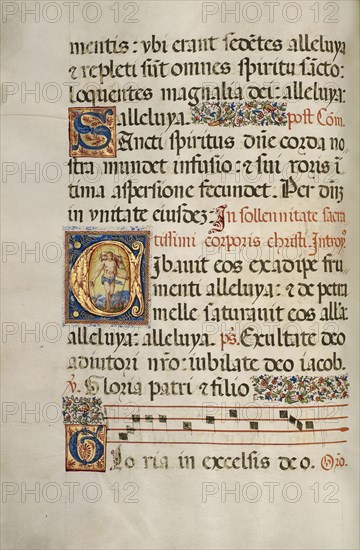 mentis: vbi erant sedētes alleluya
& repleti sūt omnes spiritu sācto:
loquentes magnalia dei: alleluya:
alleluya. post Com̄
Sancti spiritus dn̄e corda no
stra mundet infusio: & sui roris ī
tima aspersione fecundet. Per dn̄3
in vnitate eiusdē: In sollennitate sacra
tissimi corporis christi. Introy⁹
Cibauit eos exadipe fru
menti alleluya: & de petra
melle saturauit eos alla
alleluya: alleluya. ps̄. Exultate deo
adiutori nr̄o: iubilate deo iacob.
v̄. Gloria patri & filio
Glo ria in excelsis de o. Or̄o.
PHOTO12
PHOTO12
PHOTO12
PHOTO12
PHOTO12
PHOTO12